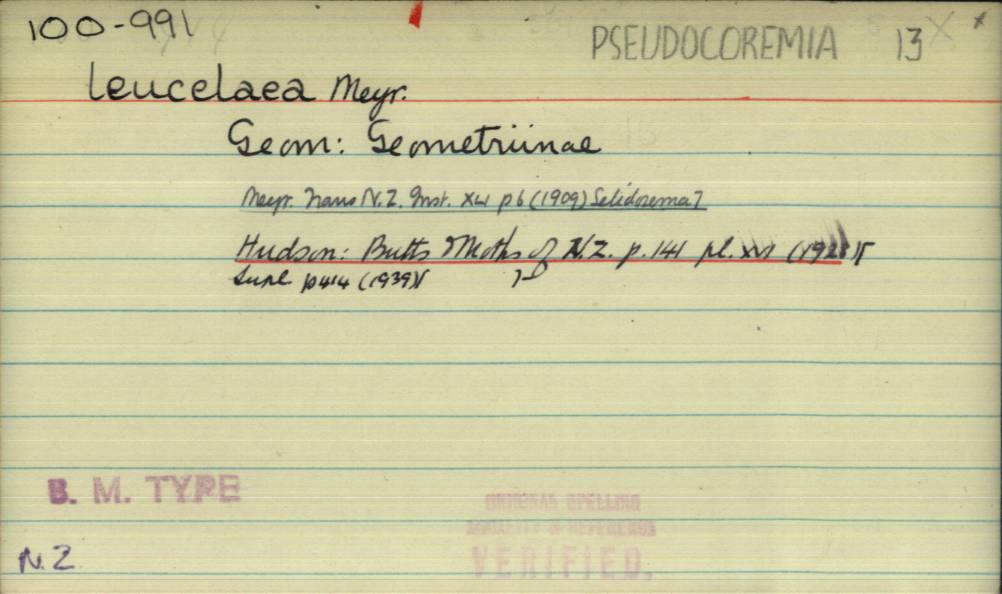 100-991
PSEUDOCOREMIA 13 X
leucelaea Meyr.
Geom: Geometriinae
Meyr. Trans N.Z. Inst. XLI p 6 (1909) Selidosema?
Hudson: Butts Moths of N.Z. p. 141 pl. XVI (1928)
Supl. p 414 (1939)
B. M. TYPE
ORIGINAL SPELLING
LOCALITY & REFERENCE
VERIFIED.
N.Z.